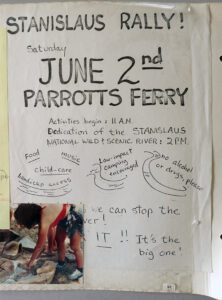 STANISLAUS RALLY!
Saturday
JUNE 2nd
PARROTTS FERRY
Activities begin: 11 A.M.
Dedication of the STANISLAUS
NATIONAL WILD & SCENIC RIVER: 2 P.M.
Food
music
child-care
Handicap access
Low-impact
camping
encouraged
no alcohol
or drugs, please
we can stop the
ver!
IT!! It's the
big one!